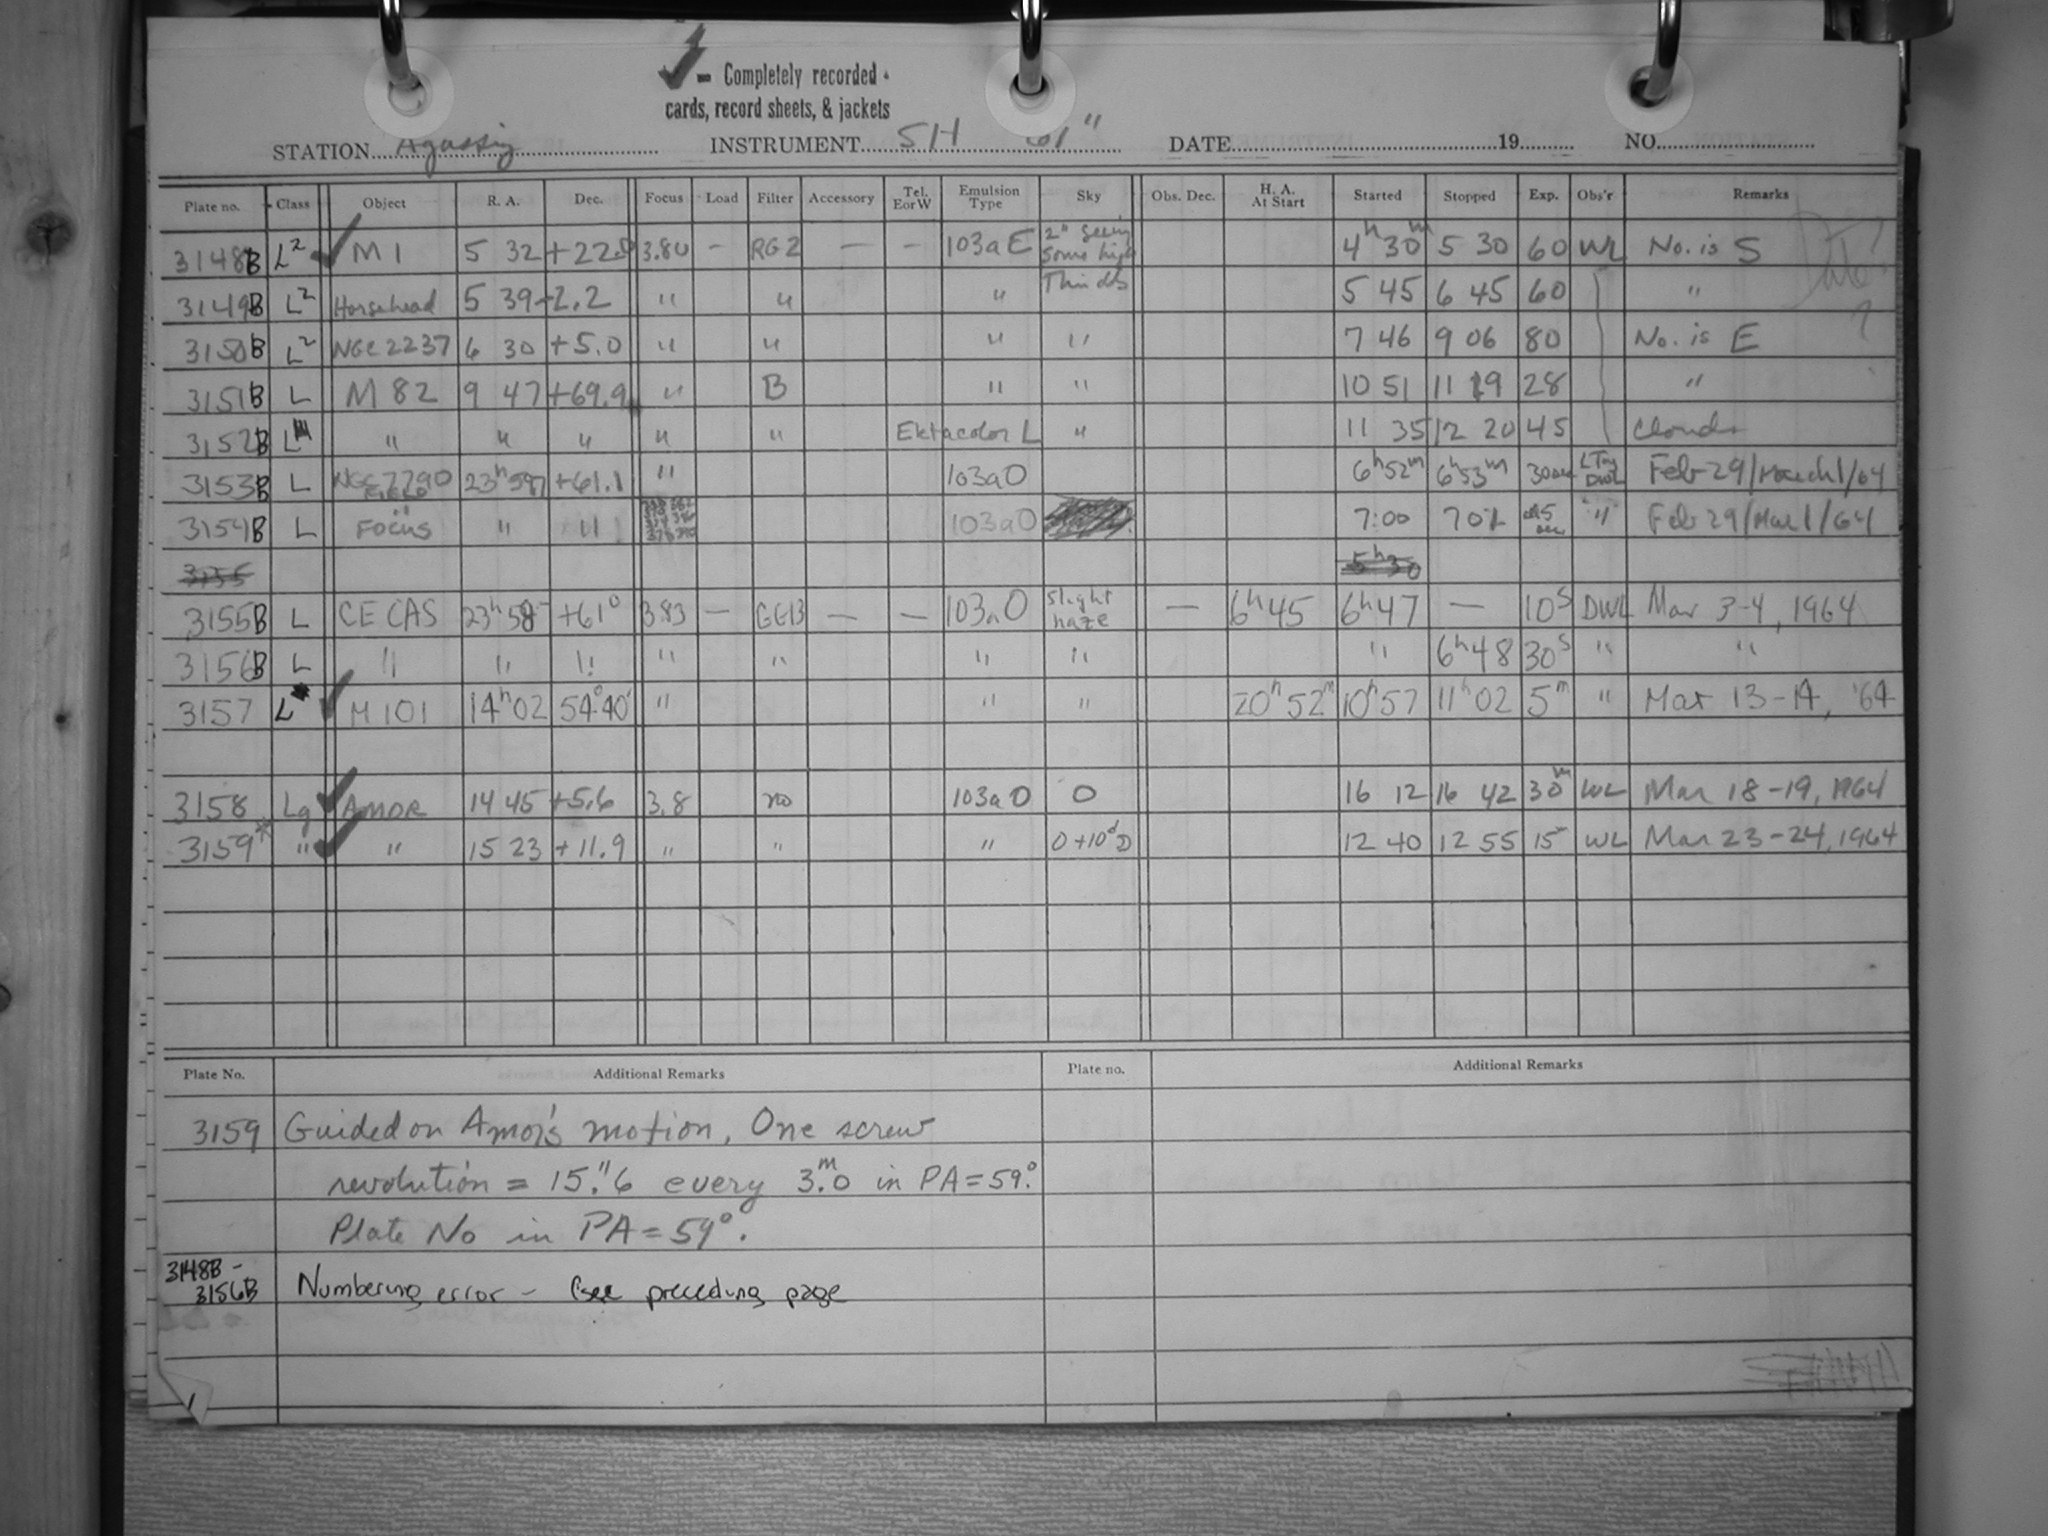 ✓ - Completely recorded
cards, record sheets, & jackets
STATION Agassiz INSTRUMENT SH 61" DATE 19 NO.
Plate no. Class Object R. A. Dec. Focus Load Filter Accessory Tel. E or W Emulsion Type Sky Obs. Dec. H. A. At Start Started Stopped Exp. Obs'r Remarks
3148B L2 ✓ M 1 5 32 +22.0 3.80 - RG2 — - 103a E 2" seeing some high 4h 30m 5 30 60 WL No. is S
3149B L2 Horsehead 5 39 -2.2 " " " Thin clds 5 45 6 45 60 "
3150B L2 NGC 2237 6 30 +5.0 " " " " 7 46 9 06 80 No. is E
3151B L M 82 9 47 +69.9 " B " " 10 51 11 19 28 "
3152B L " " " " " Ektacolor L " 11 35 12 20 45 Clouds
3153B L NGC 7790 FIELD 23h 59 +61.1 " 103aO 6h52m 6h53m 30sec DWL Feb 29/March 1/64
3154B L Focus " " 103aO 7:00 701 " Feb 29/Mar 1/64
3155 5h30
3155B L CE CAS 23h 58 +61° 3.83 — GG13 — — 103aO Slight haze — 6h45 6h47 — 10s DWL Mar 3-4, 1964
3156B L " " " " " " " " 6h48 30s " "
3157 L ✓ M 101 14h02 54°40' " " " 20h52m 10h57 11h02 5m " Mar 13-14, '64
3158 Lg ✓ AMOR 14 45 +5.6 3.8 no 103aO O 16 12 16 42 30m WL Mar 18-19, 1964
3159* " ✓ " 15 23 +11.9 " " " 0+10d D 12 40 12 55 15 WL Mar 23-24, 1964
Plate No. Additional Remarks Plate no. Additional Remarks
3159 Guided on Amor's motion, One screw
revolution = 15."6 every 3m.0 in PA=59°.
Plate No in PA=59°.
3148B -
3156B Numbering error - (see preceding page